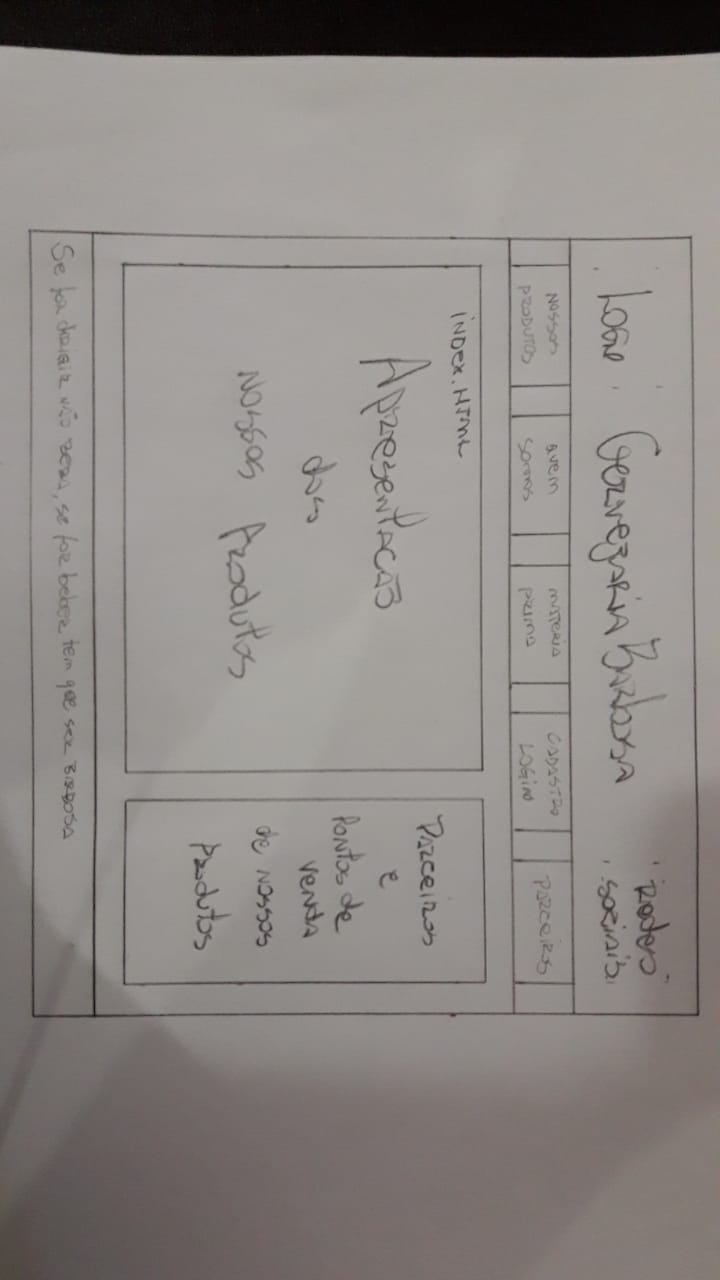 Logo Cervejaria Barbosa Redes
sociais
Nossos
Produtos
Quem
somos
Materia
Prima
Cadastro
Login
Parceiros
index.HTML
Apresentacaõ
dos
Nossos Produtos
Parceiros
e
Pontos de
venda
de nossos
Produtos
Se for dirigir não beba, se for beber tem que ser Barbosa